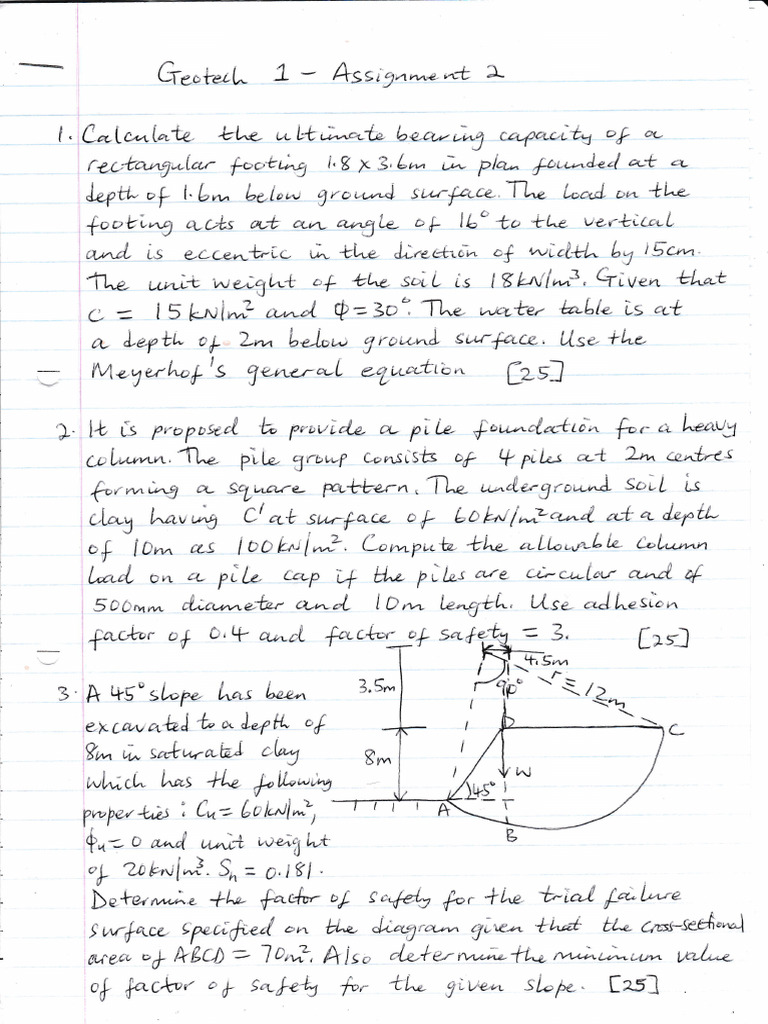 Geotech 1 - Assignment 2
1. Calculate the ultimate bearing capacity of a
rectangular footing 1.8 x 3.6m in plan founded at a
depth of 1.6m below ground surface. The load on the
footing acts at an angle of 16° to the vertical
and is eccentric in the direction of width by 15cm.
The unit weight of the soil is 18kN/m³. Given that
c = 15kN/m² and Φ=30°. The water table is at
a depth of 2m below ground surface. Use the
Meyerhof's general equation [25]
2. It is proposed to provide a pile foundation for a heavy
column. The pile group consists of 4 piles at 2m centres
forming a square pattern. The underground soil is
clay having C' at surface of 60kN/m² and at a depth
of 10m as 100kN/m². Compute the allowable column
load on a pile cap if the piles are circular and of
500mm diameter and 10m length. Use adhesion
factor of 0.4 and factor of safety = 3. [25]
3. A 45° slope has been
excavated to a depth of
8m in saturated clay
which has the following
properties: Cu = 60kN/m²,
Φu = 0 and unit weight
of 20kN/m³. Sn = 0.181.
Determine the factor of safety for the trial failure
surface specified on the diagram given that the cross-sectional
area of ABCD = 70m². Also determine the minimum value
of factor of safety for the given slope. [25]
4.5m
3.5m
90°
r = 12m
D
C
8m
W
45°
A
B